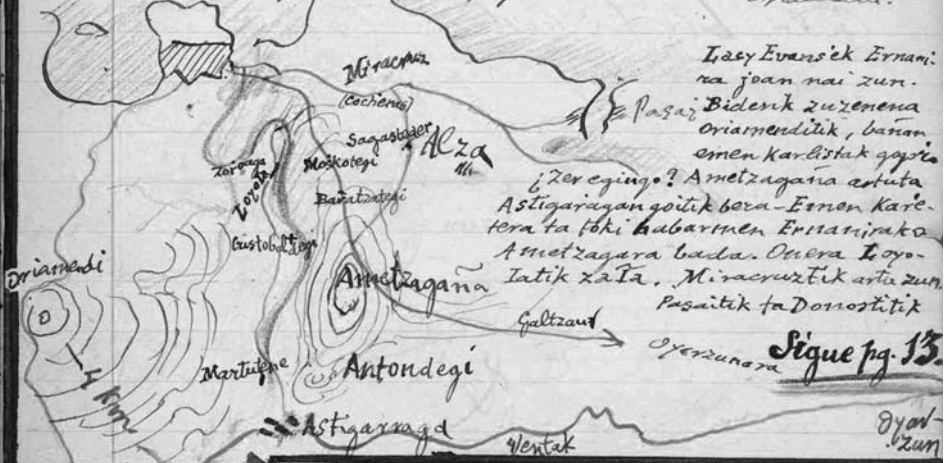 Miracruz
(Cochenes)
Pasai
Sagastager
Alza
Moskotegi
Zorgaga
Loyola
Baratzategi
Cristobaldegi
Oriamendi
Ametzagaña
Galtzaur
Martutene
Antondegi
4 km
Astigarraga
Ventak
Oyerzunara
Oyar
zun
Lasy Evans'ek Ernani-
ra joan nai zun.
Biderik zuzenena
oriamenditik, bañan
emen karlistak gogoz
¿Zer egingo? Ametzagaña artuta
Astigaragan goitik bera - Emen Kare-
tera ta toki habarmen Ernanirako
Ametzagara bada. Onera Loyo-
latik zaĺa. Miracruztik artu zun.
Pasaitik ta Donostitik
Sigue pg. 13